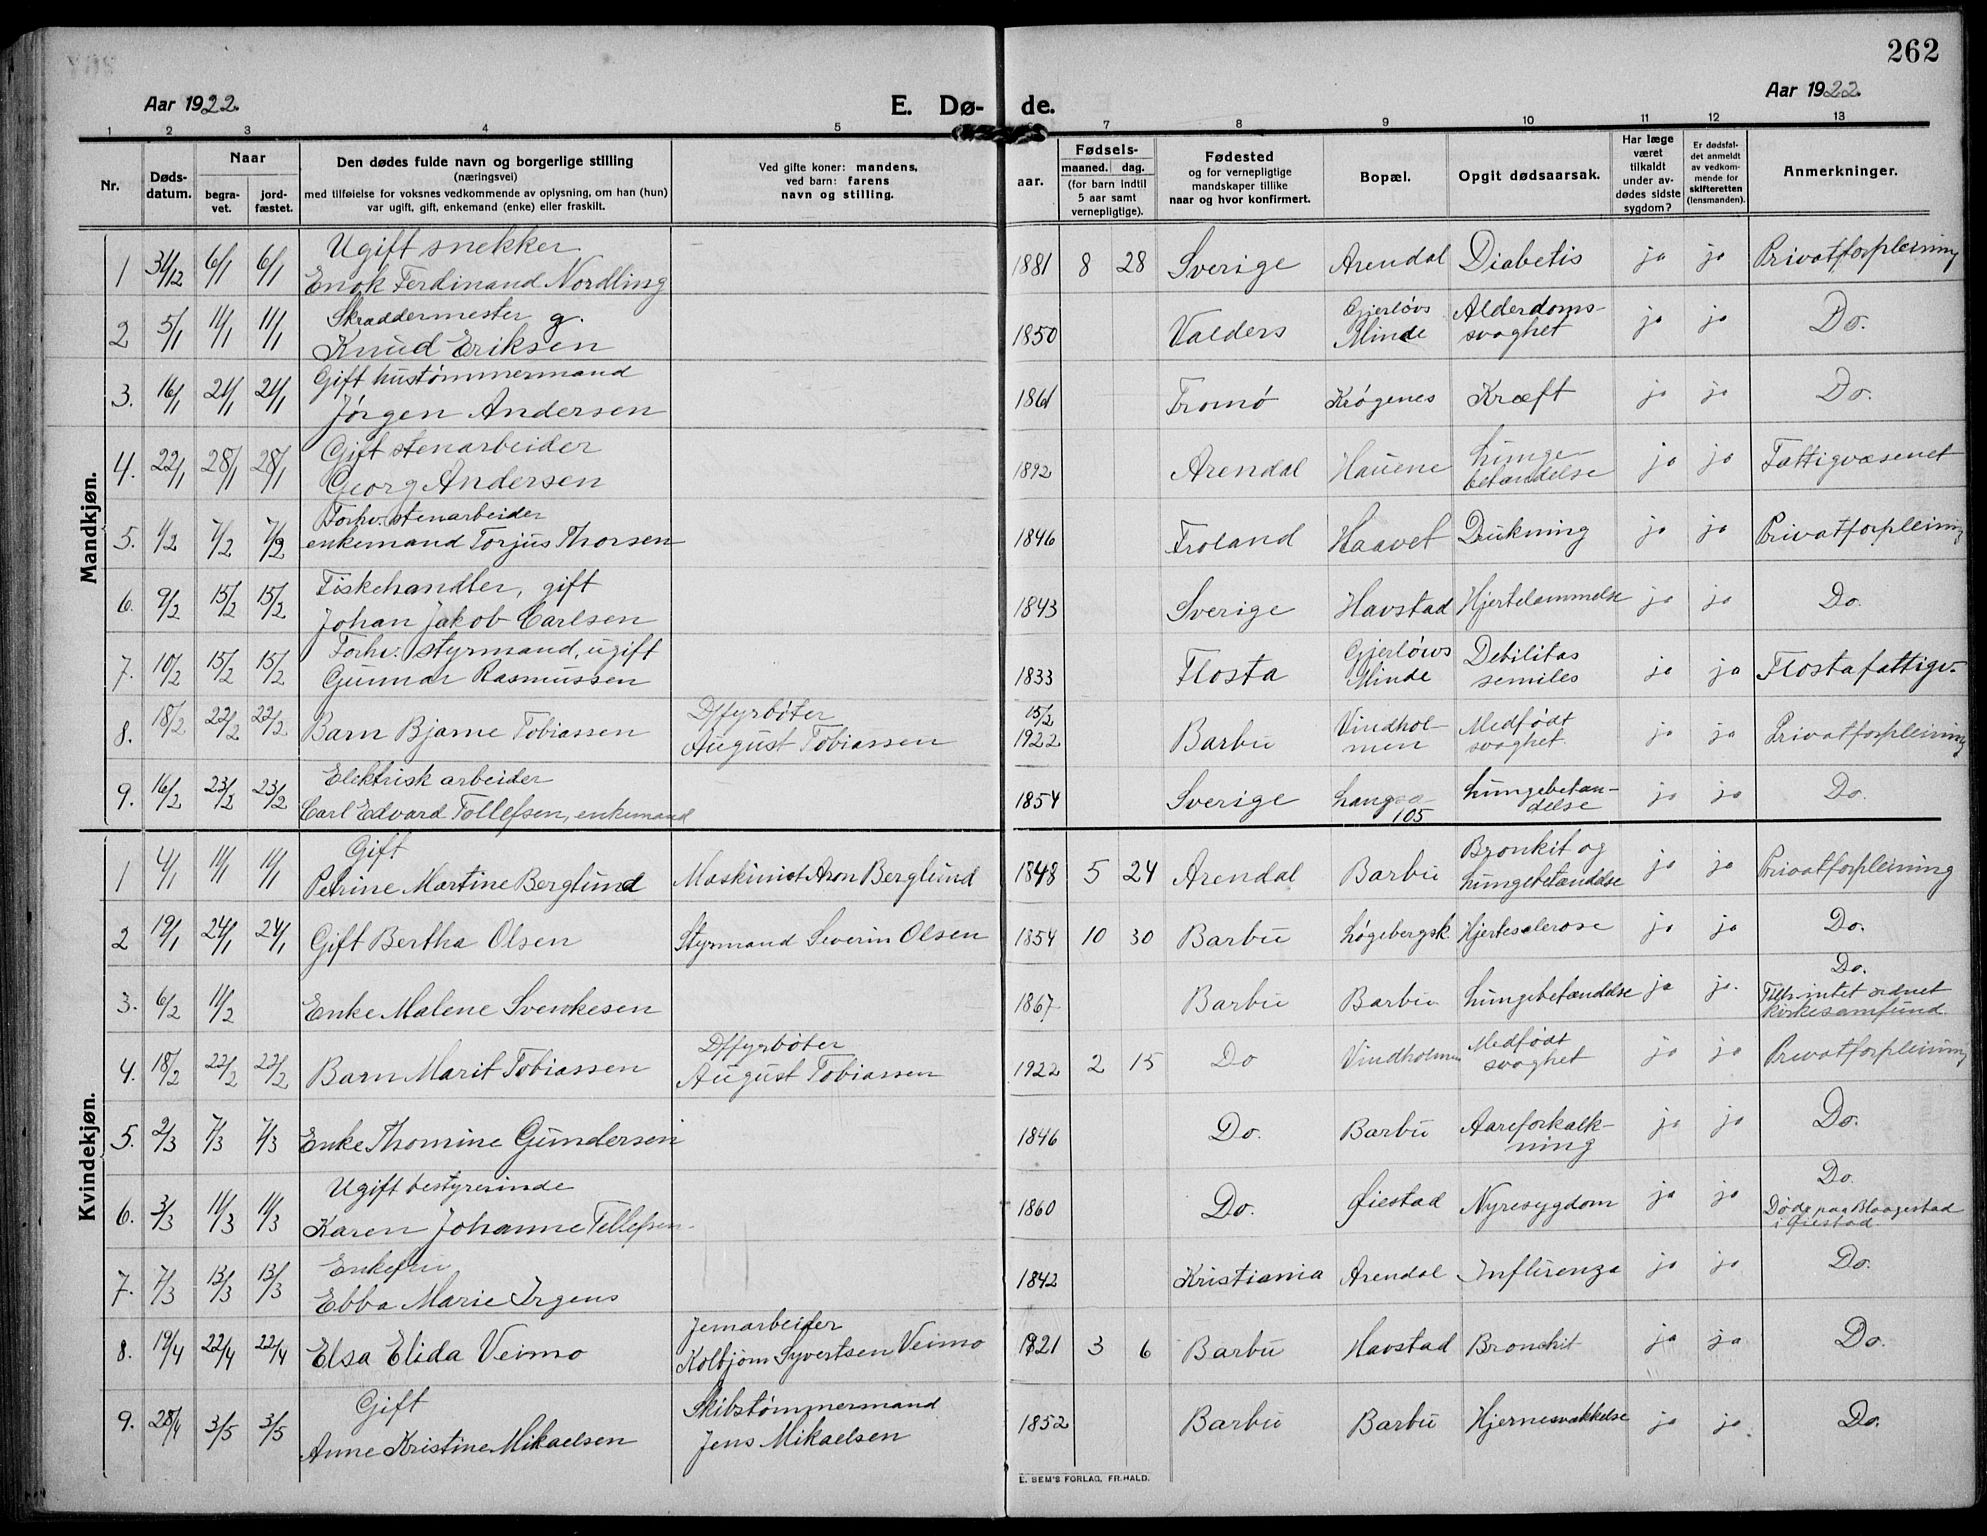 262
Aar 1922.
E. Dø- de.
Aar 1922.
1 2 3 4 5 7 8 9 10 11 12 13
Nr.
Døds-
datum.
Naar
begra-
vet.
jord-
fæstet.
Den dødes fulde navn og borgerlige stilling
(næringsvei)
med tilføielse for voksnes vedkommende av oplysning, om han (hun)
var ugift, gift, enkemand (enke) eller fraskilt.
Ved gifte koner: mandens,
ved barn: farens
navn og stilling.
aar.
Fødsels-
maaned. dag.
(for barn indtil
5 aar samt
vernepligtige).
Fødested
og for vernepligtige
mandskaper tillike
naar og hvor konfirmert.
Bopæl.
Opgit dødsaarsak.
Har læge
været
tilkaldt
under av-
dødes sidste
sygdom?
Er dødsfal-
det anmeldt
av vedkom-
mende for
skifteretten
(lensmanden).
Anmerkninger.
Mandkjøn.
1 31/12 6/1 6/1 Ugift snekker
Enok Ferdinand Nordling 1881 8 28 Sverige Arendal Diabetis ja ja Privatforpleining
2 5/1 11/1 11/1 Skræddermester g.
Knud Eriksen 1850 Valders Gjerløvs
Minde Alderdoms-
svaghet ja ja Do.
3. 16/1 21/1 21/1 Gift hustømmermand
Jørgen Andersen 1861 Tromø Krøgenes Kræft ja ja Do.
4. 22/1 28/1 28/1 Gift stenarbeider
Georg Andersen 1892 Arendal Hauene Lunge-
betændelse ja ja Fattigvæsenet
5. 1/2 7/2 7/2 Forhv. stenarbeider
enkemand Torjus Thorsen 1846 Froland Haavet Drukning ja ja Privatforpleining
6. 9/2 15/2 15/2 Fiskehandler, gift
Johan Jakob Carlsen 1843 Sverige Havstad Hjertelammelse ja ja Do.
7. 10/2 15/2 15/2 Forhv. styrmand, ugift
Gunnar Rasmussen 1833 Flosta Gjerløws
Minde Debilitas
semiles ja ja Flosta fattigv.
8. 18/2 22/2 22/2 Barn Bjarne Tobiassen D/ffyrbøter
August Tobiassen 15/2
1922 Barbu Vindhol-
men Medfødt
svaghet. ja ja Privatforpleining
9. 16/2 23/2 23/2 Elektrisk arbeider
Carl Edvard Tollefsen, enkemand 1854 Sverige Langsæ
105 Lungebetæn-
delse ja ja Do.
Kvindekjøn.
1 4/1 11/1 11/1 Gift
Petrine Martine Berglund Maskinist Aron Berglund 1848 5 24 Arendal Barbu Bronkit og
Lungebetændelse ja ja Privatforpleining
2 19/1 24/1 24/1 Gift Bertha Olsen Styrmand Severin Olsen 1854 10 30 Barbu Løgebergsk. Hjertesclerose ja ja Do.
3. 6/2 11/2 Enke Malene Svenkesen 1867 Barbu Barbu Lungebetændelse ja ja. Do.
Tilh. intet ordnet
kirkesamfund.
4. 18/2 22/2 22/2 Barn Marit Tobiassen D/ffyrbøter
August Tobiassen 1922 2 15 Do Vindholmen Medfødt
svaghet ja ja Privatforpleining
5. 2/3 7/3 7/3 Enke Thomine Gundersen 1846 Do. Barbu Aareforkalk-
ning ja ja Do.
6. 3/3 11/3 11/3 Ugift bestyrerinde
Karen Johanne Tellefsen 1860 Do. Øiestad Nyresygdom ja ja Do.
Døde paa Blaagestad
i Øiestad
7. 7/3 13/3 13/3 Enkefru
Ebba Marie Irgens 1842 Kristiania Arendal Influenza ja ja Do.
8. 19/4 22/4 22/4 Elsa Elida Veimo Jernarbeider
Kolbjørn Syvertsen Veimo 1921 3 6 Barbu Havstad Bronchit ja ja Do.
9. 28/4 3/5 3/5 Gift
Anne Kristine Mikaelsen Skibstømmermand
Jens Mikaelsen 1852 Barbu Barbu Hjernesvækkelse ja ja Do.
E. SEM'S FORLAG, FR.HALD.